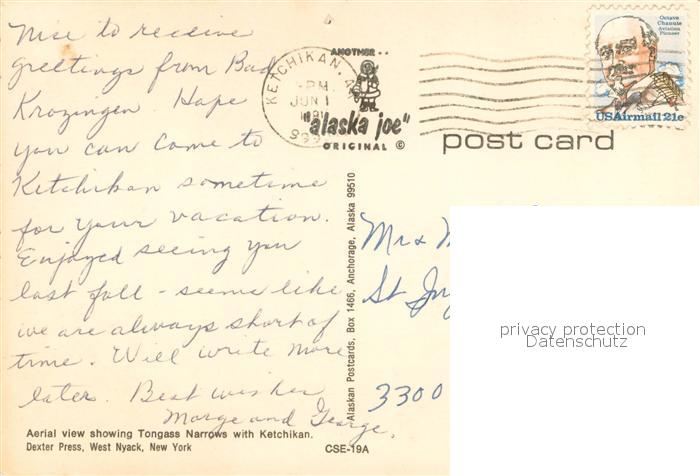 Nice to receive
greetings from Bad
Krozingen Hope
you can come to
Ketchikan sometime
for your vacation.
Enjoyed seeing you
last fall - seems like
we are always short of
time. Will write more
later. Best wishes
Marge and George.
Aerial view showing Tongass Narrows with Ketchikan.
Dexter Press, West Nyack, New York
CSE-19A
Alaskan Postcards, Box 1466, Anchorage, Alaska 99510
KETCHIKAN, AK
PM
JUN 1
ANOTHER..
"alaska joe"
ORIGINAL ©
post card
Octave
Chanute
Aviation
Pioneer
USAirmail 21c
Mr &
St
3300
privacy protection
Datenschutz